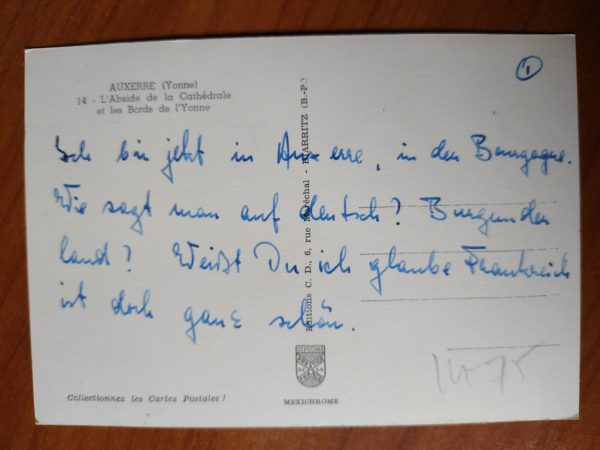 ①
AUXERRE (Yonne)
14 - L'Abside de la Cathédrale
et les Bords de l'Yonne
Ich bin jetzt in Auxerre, in der Bourgogne.
Wie sagt man auf deutsch? Burgunder
land? Weißt Du ich glaube Frankreich
ist doch ganz schön.
Editions C. D., 6, rue Maréchal - BIARRITZ (B.-P.)
Collectionnez les Cartes Postales !
MEXICHROME